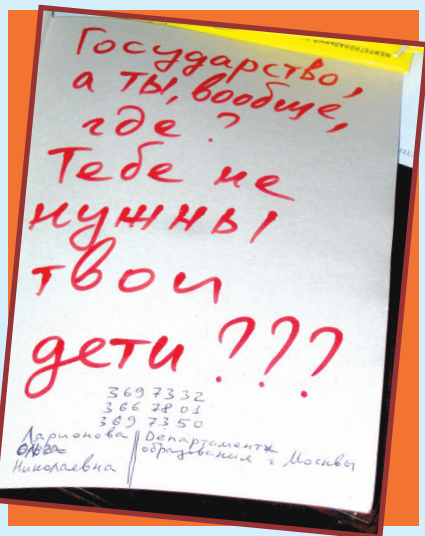 МЕЖРЕГИОНАЛЬНЫЙ
Государство,
а ты, вообще,
где?
Тебе не
нужны
твои
дети???
3697332
3667801
3697350
Ларионова
Ольга
Николаевна
Департамент
образования г. Москвы